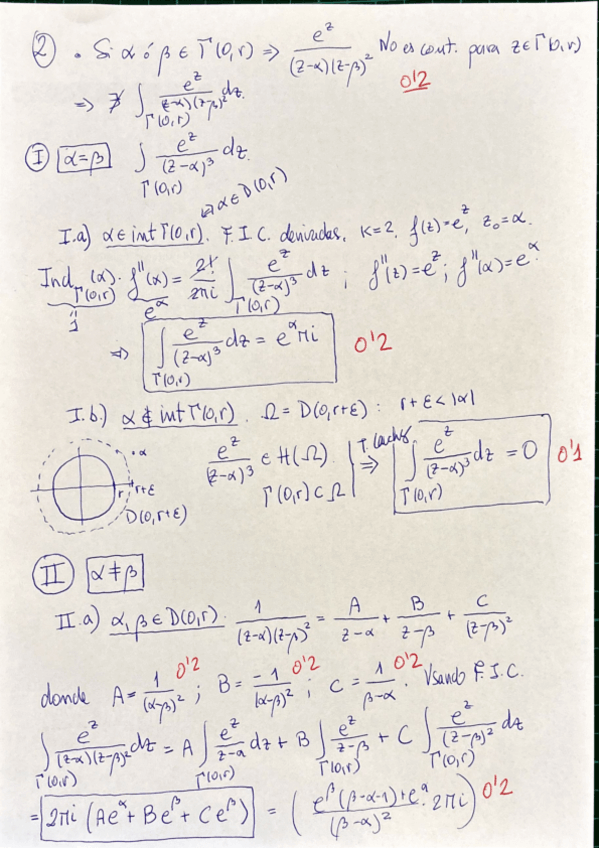 ② • Si α ó β ∈ Γ(0,r) ⇒ e^z / (z-α)(z-β)^2 No es cont. para z∈Γ(0,r)
0'2
⇒ ∄ ∫_Γ(0,r) e^z / (z-α)(z-β)^2 dz.
Ⓘ α=β ∫_Γ(0,r) e^z / (z-α)^3 dz.
↔ α∈D(0,r)
I.a) α∈int Γ(0,r). F.I.C. derivadas, K=2, f(z)=e^z, z_0=α.
Ind_Γ(0,r) (α) · f''(α) = 2!/2πi ∫_Γ(0,r) e^z / (z-α)^3 dz ; f''(z)=e^z ; f''(α)=e^α
1 e^α
⇒ ∫_Γ(0,r) e^z / (z-α)^3 dz = e^α πi 0'2
I.b) α ∉ int Γ(0,r). Ω = D(0,r+ε) : r+ε < |α|
• α
r r+ε
D(0,r+ε)
e^z / (z-α)^3 ∈ H(Ω)
Γ(0,r) ⊂ Ω
T. Cauchy ⇒ ∫_Γ(0,r) e^z / (z-α)^3 dz = 0 0'1
Ⅱ α≠β
II.a) α,β ∈ D(0,r). 1 / (z-α)(z-β)^2 = A / z-α + B / z-β + C / (z-β)^2
donde A = 1 / (α-β)^2 0'2 ; B = -1 / (α-β)^2 0'2 ; C = 1 / β-α 0'2 . Usando F.I.C.
∫_Γ(0,r) e^z / (z-α)(z-β)^2 dz = A ∫_Γ(0,r) e^z / z-α dz + B ∫_Γ(0,r) e^z / z-β + C ∫_Γ(0,r) e^z / (z-β)^2 dz
= 2πi (Ae^α + Be^β + Ce^β) = ( e^β(β-α-1)+e^α / (β-α)^2 · 2πi ) 0'2